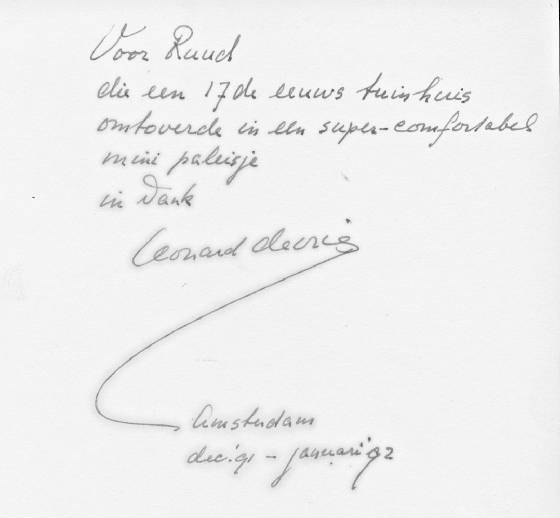 Voor Ruud
die een 17de eeuws tuinhuis
omtoverde in een super-comfortabel
mini paleisje
in dank
Leonard de Vries
Amsterdam
dec. '91 - januari '92